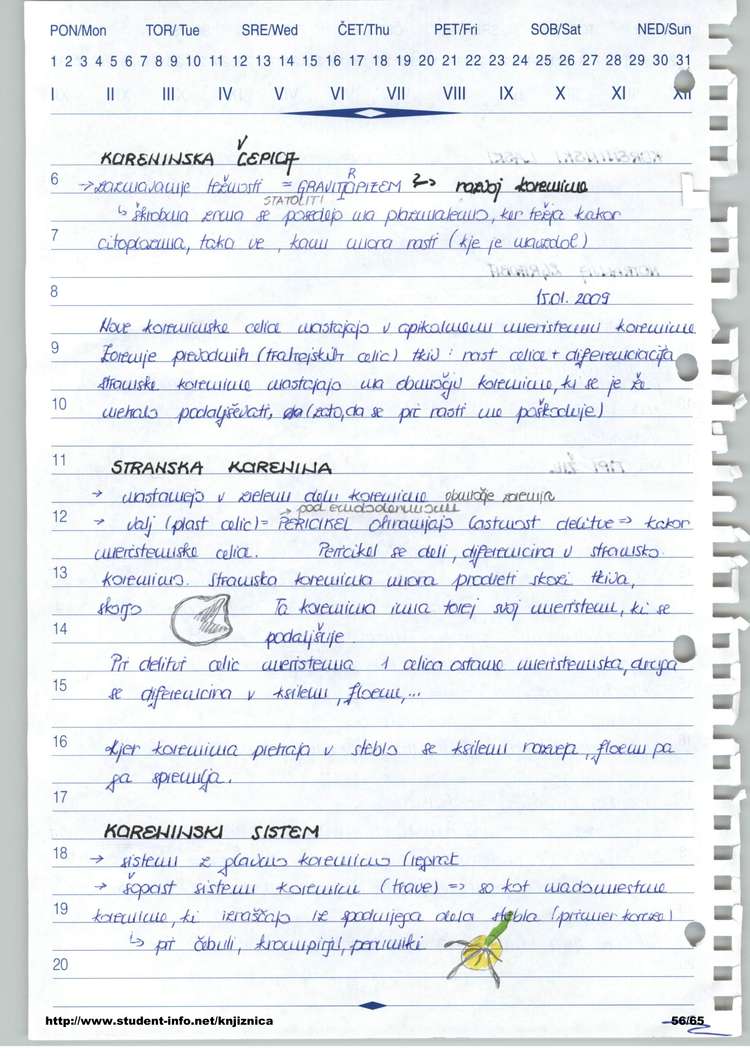 PON/Mon TOR/Tue SRE/Wed ČET/Thu PET/Fri SOB/Sat NED/Sun
1 2 3 4 5 6 7 8 9 10 11 12 13 14 15 16 17 18 19 20 21 22 23 24 25 26 27 28 29 30 31
I II III IV V VI VII VIII IX X XI XII
KORENINSKA ČEPICA
6 → zaznavanje težnosti = GRAVITROPIZEM → razvoj korenine
STATOLITI
↳ škrobna zrna se posedajo na plazmalemo, ker težja kakor
7 citoplazma, tako ve, kam mora rasti (kje je navzdol)
8
15.01.2009
Nove koreninske celice nastajajo v apikalnemu meristemu korenine
9 Zorenje prevodnih (trahejskih celic) tkiv: rast celice + diferenciacija
Stranske korenine nastajajo na območju korenine, ki se je že
10 nehalo podaljševati, (zato, da se pri rasti ne poškoduje)
11 STRANSKA KORENINA
→ nastanejo v zrelem delu korenine območje zorenja
→ pod endodermisom
12 → valj (plast celic) = PERICIKEL ohranjajo lastnost delitve => kakor
meristemske celice. Pericikel se deli, diferencira v stransko
13 korenino. Stranska korenina mora prodreti skozi tkiva,
skorjo Ta korenina ima torej svoj meristem, ki se
14 podaljšuje.
Pri delitvi celic meristema 1 celica ostane meristemska, druga
15 se diferencira v ksilem, floem,...
16 Kjer korenina prehaja v steblo se ksilem razveja, floem pa
ga spremlja.
17
KORENINSKI SISTEM
18 → sistem z glavno korenino (regrat
→ šopast sistem korenin (trave) => so kot nadomestne
19 korenine, ki izraščajo iz spodnjega dela stebla (primer koruze)
↳ pri čebuli, krompirju,
20
http://www.student-info.net/knjiznica 56/65